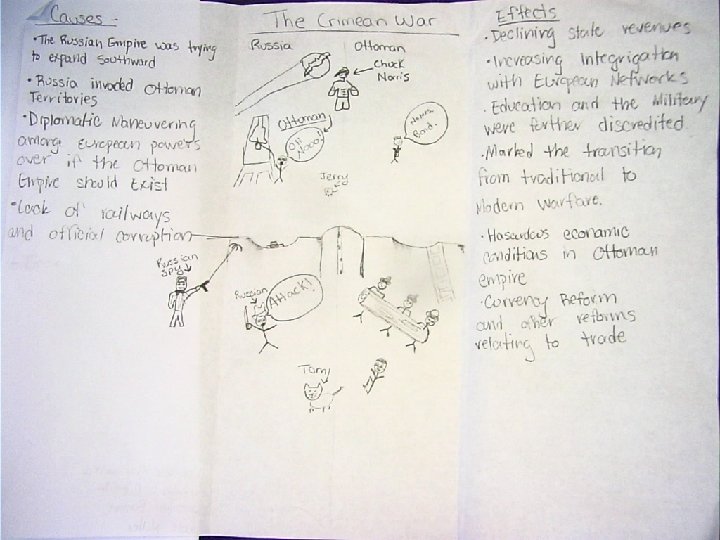 Causes:
•The Russian Empire was trying
to expand southward
•Russia invaded Ottoman
Territories
•Diplomatic Maneuvering
among European powers
over if the Ottoman
Empire should Exist
•Lack of railways
and official corruption
The Crimean War
Russia
Ottoman
Chuck
Noris
Ottoman
Oh
Nooo!
Bond.
Jerry
Russian
spy
Russian
Attack!
Tom
Effects
•Declining state revenues
•Increasing Integrigation
with European Networks
•Education and the Military
were further discredited
•Marked the transition
from traditional to
Modern Warfare.
•Hasardous economic
conditions in Ottoman
empire
•Currency Reform
and other reforms
relating to trade